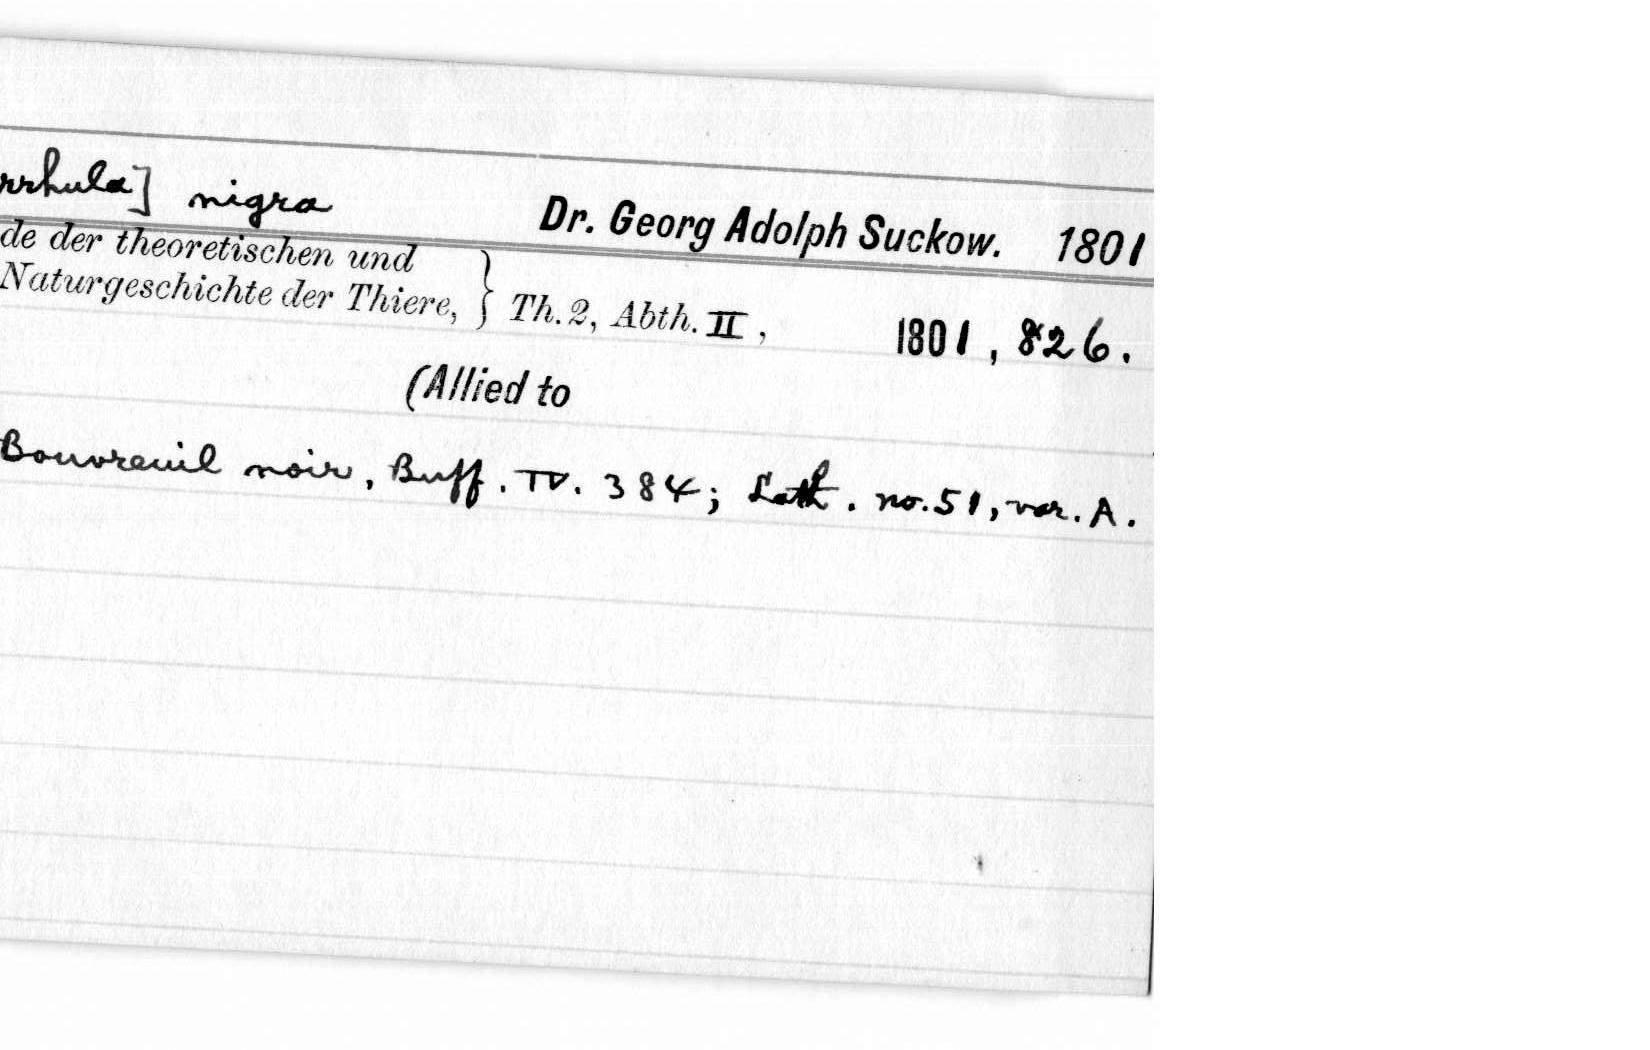 rrhula] nigra Dr. Georg Adolph Suckow. 1801
de der theoretischen und
Naturgeschichte der Thiere, } Th. 2, Abth. II, 1801, 826.
(Allied to
Bouvreuil noir, Buff. IV. 384; Lath. no. 51, var. A.